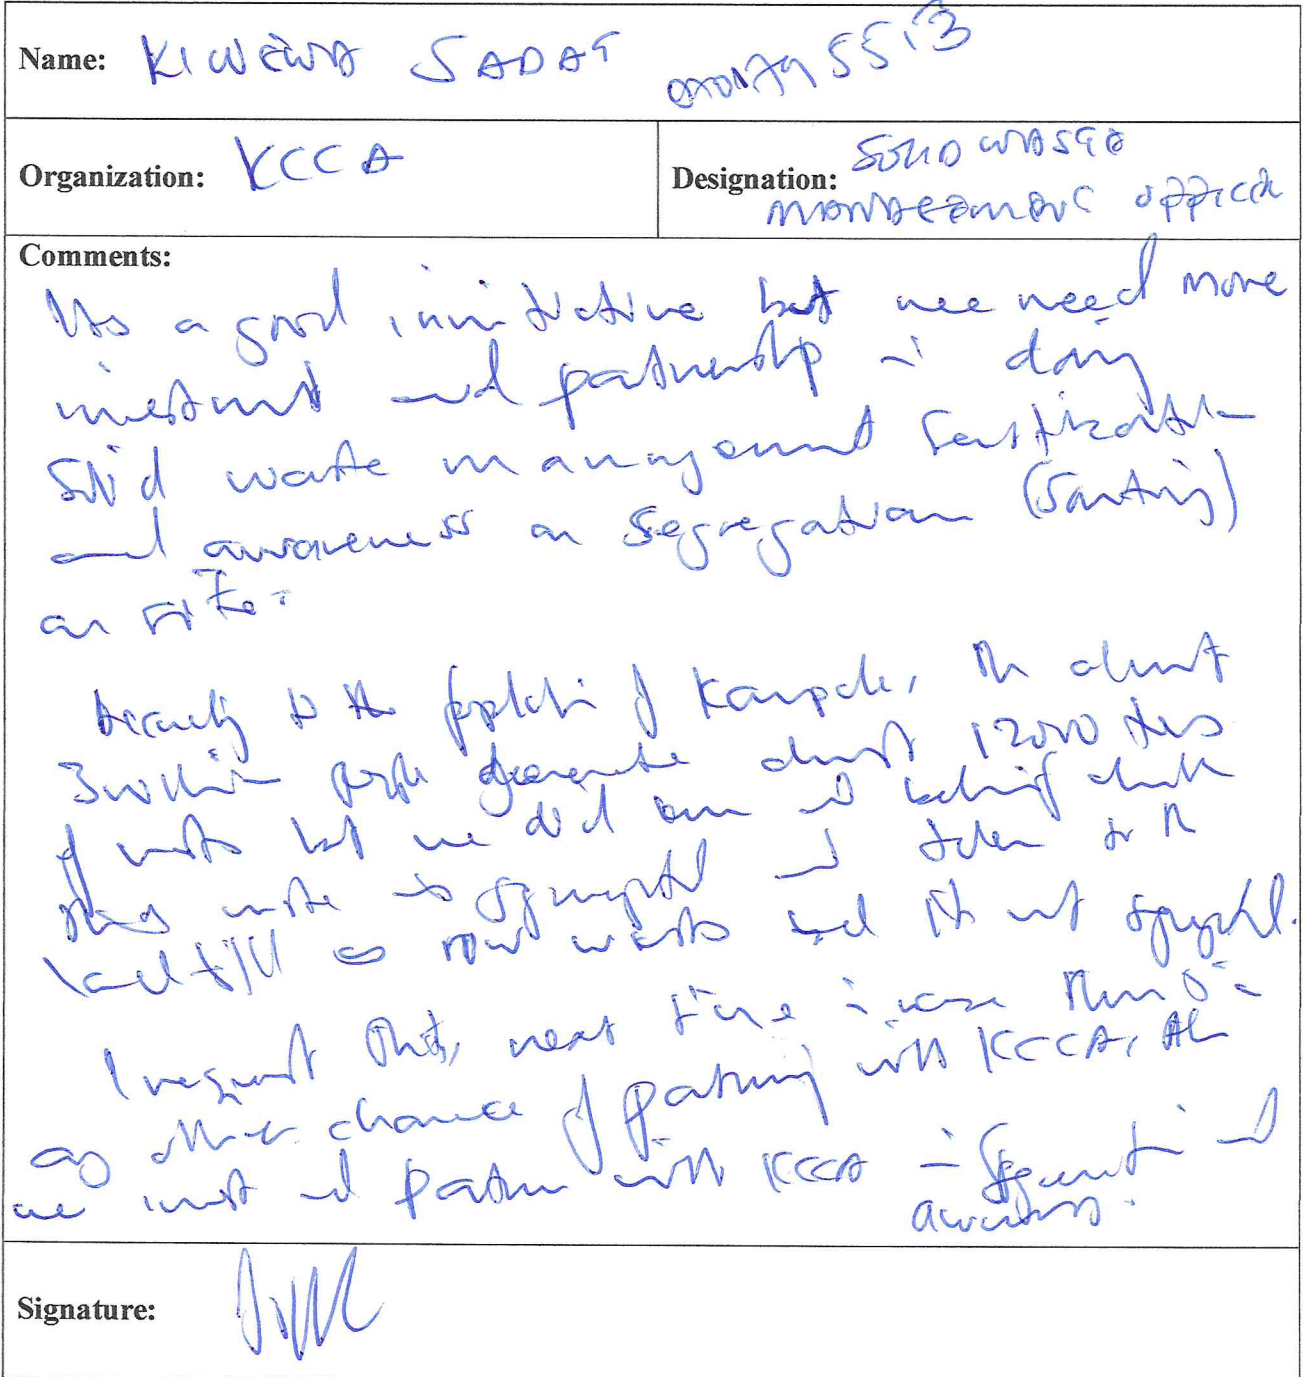 Name: KIWEWA SADAT
Organization: KCCA
Designation: SOLID WASTE
MANAGEMENT OFFICER
Comments:
Its a good innitiative but wee need more
investment and partnership in doing
Solid waste management Sensitization
and awareness on Segregation (Sorting)
on site.
to the of Kampala, the almost
3 million people generate almost tons
of waste but we did
waste is and taken to the
landfill as raw waste and its not
I request that, next time in case there is
any other chance of partnering with KCCA, the
we invest and partner with KCCA in and
awareness.
Signature: